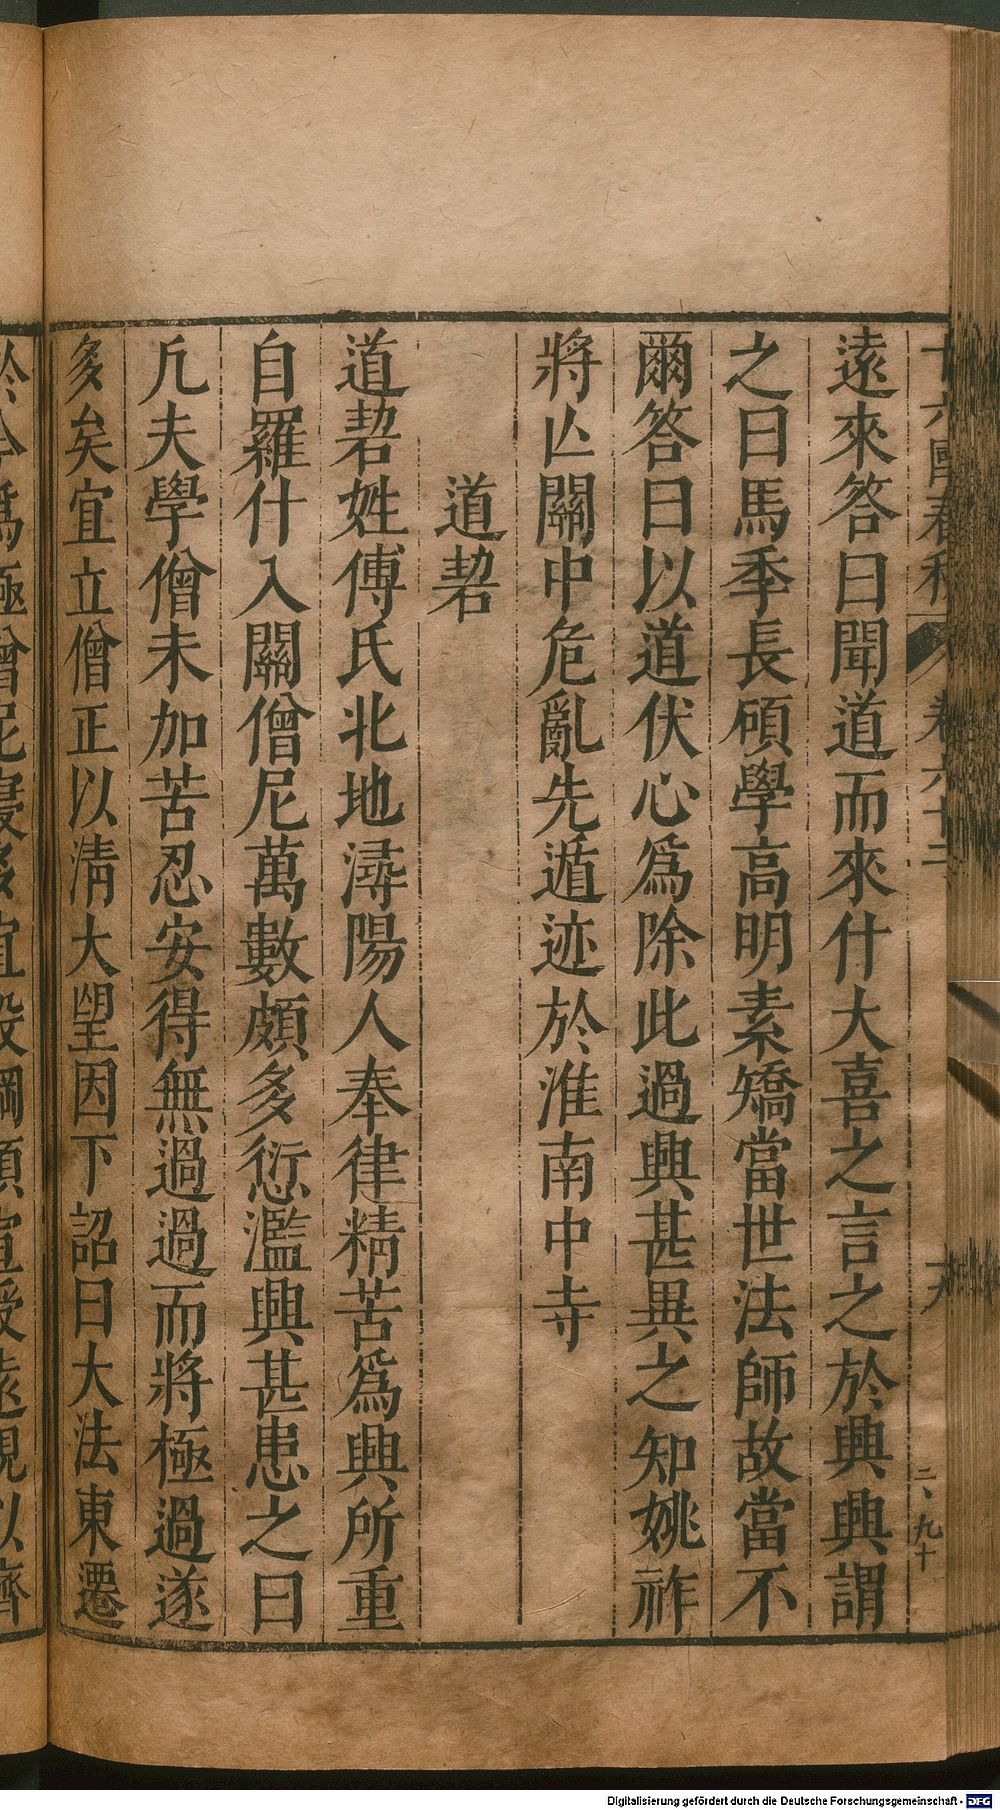 遠來答曰聞道而來什大喜之言之於興興謂
之曰馬季長碩學高明素矯當世法師故當不
爾答曰以道伏心爲除此過興甚異之知姚祚
將亾關中危亂先遁迹於淮南中寺
道䂮
道䂮姓傅氏北地潯陽人奉律精苦爲興所重
自羅什入關僧尼萬數頗多愆濫興甚患之曰
凢夫學僧未加苦忍安得無過過而將極過遂
多矣宜立僧正以清大望因下詔曰大法東遷
Digitalisierung gefördert durch die Deutsche Forschungsgemeinschaft - DFG